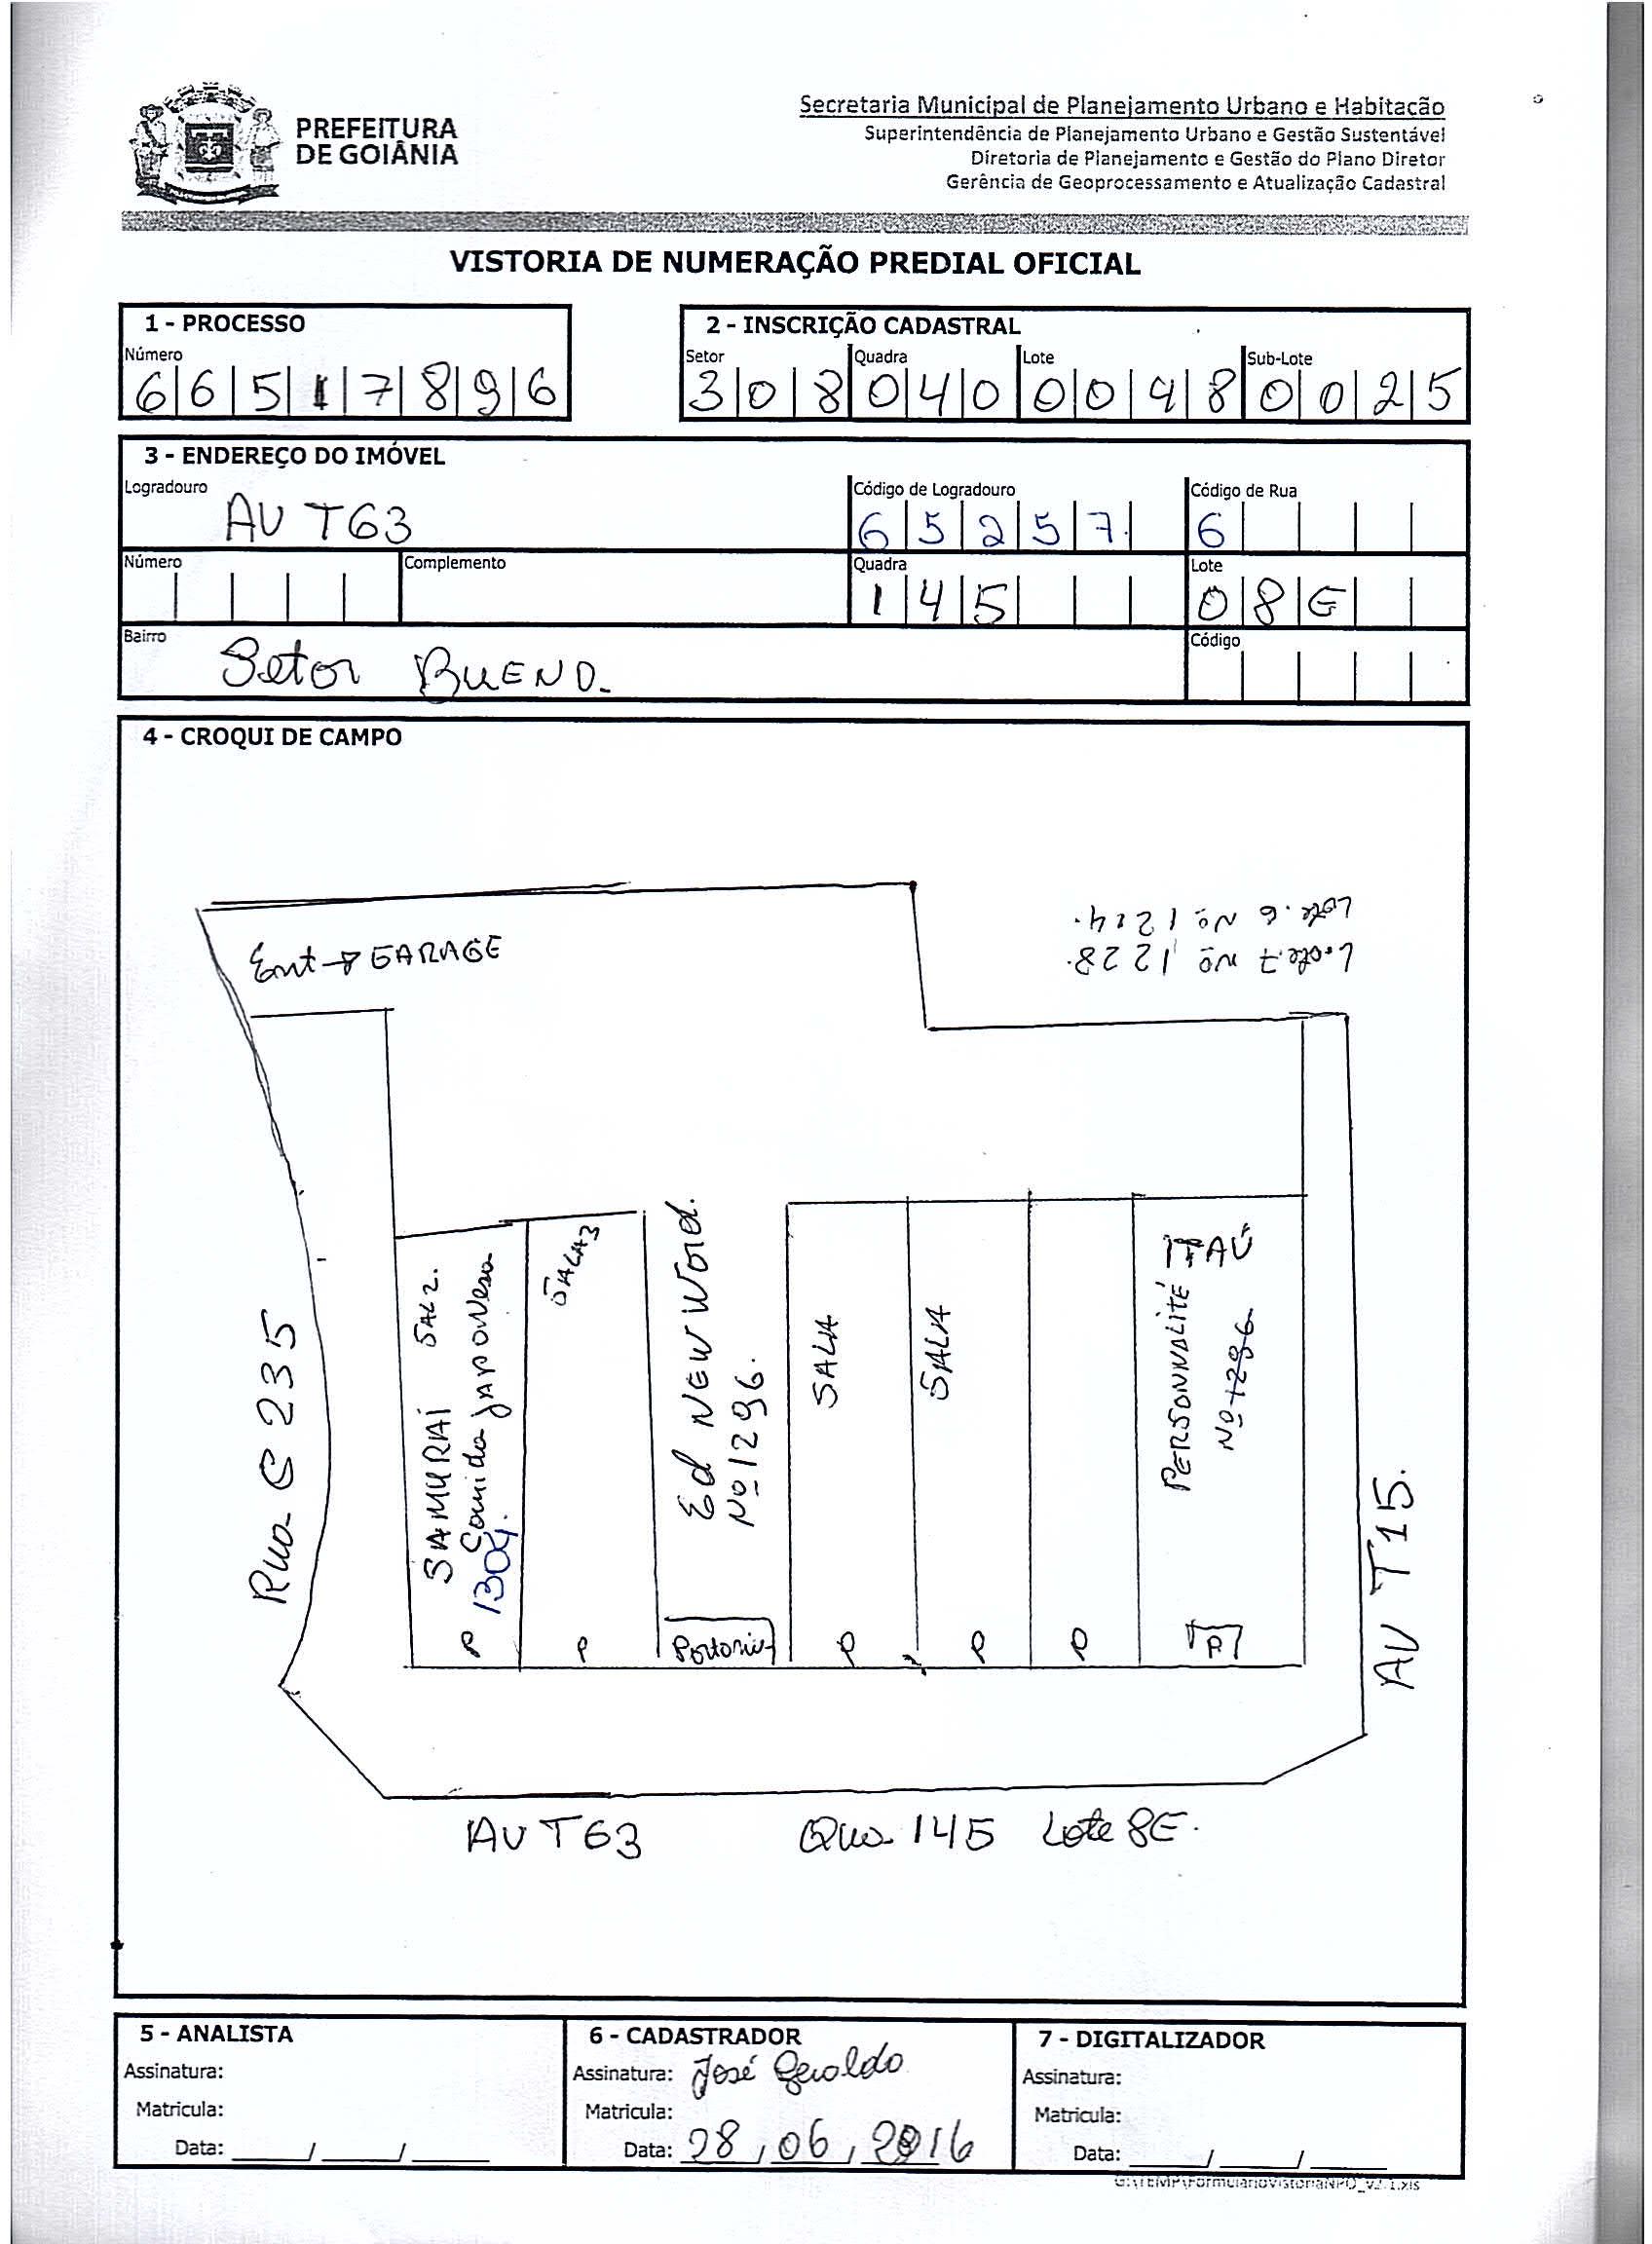 PREFEITURA
DE GOIÂNIA
Secretaria Municipal de Planejamento Urbano e Habitação
Superintendência de Planejamento Urbano e Gestão Sustentável
Diretoria de Planejamento e Gestão do Plano Diretor
Gerência de Geoprocessamento e Atualização Cadastral
VISTORIA DE NUMERAÇÃO PREDIAL OFICIAL
1 - PROCESSO
Número
6 6 5 1 7 8 9 6
2 - INSCRIÇÃO CADASTRAL
Setor Quadra Lote Sub-Lote
3 0 8 0 4 0 0 0 9 8 0 0 2 5
3 - ENDEREÇO DO IMÓVEL
Logradouro Código de Logradouro Código de Rua
AV T63 6 5 2 5 7 6
Número Complemento Quadra Lote
1 4 5 0 8 E
Bairro Código
Setor BUENO.
4 - CROQUI DE CAMPO
Lote 7 nº 1228.
Lote. 6 Nº 1214.
Ent → GARAGE
Rua C 235
SAMURAI SAL 2.
Comida JAPONesa
1304.
SALA 3
Ed NEW World.
Nº 1296.
SALA
SALA
ITAÚ
PERSONNALITÉ
Nº 1296
AV T15.
P P Portaria P P P P
AV T63 Qua 145 Lote 8E.
5 - ANALISTA
Assinatura:
Matricula:
Data: ____/____/____
6 - CADASTRADOR
Assinatura: José Geraldo
Matricula:
Data: 28, 06, 2016
7 - DIGITALIZADOR
Assinatura:
Matricula:
Data: ____/____/____
G:\TEMP\FormularioVistoriaNPO_v2.1.xls